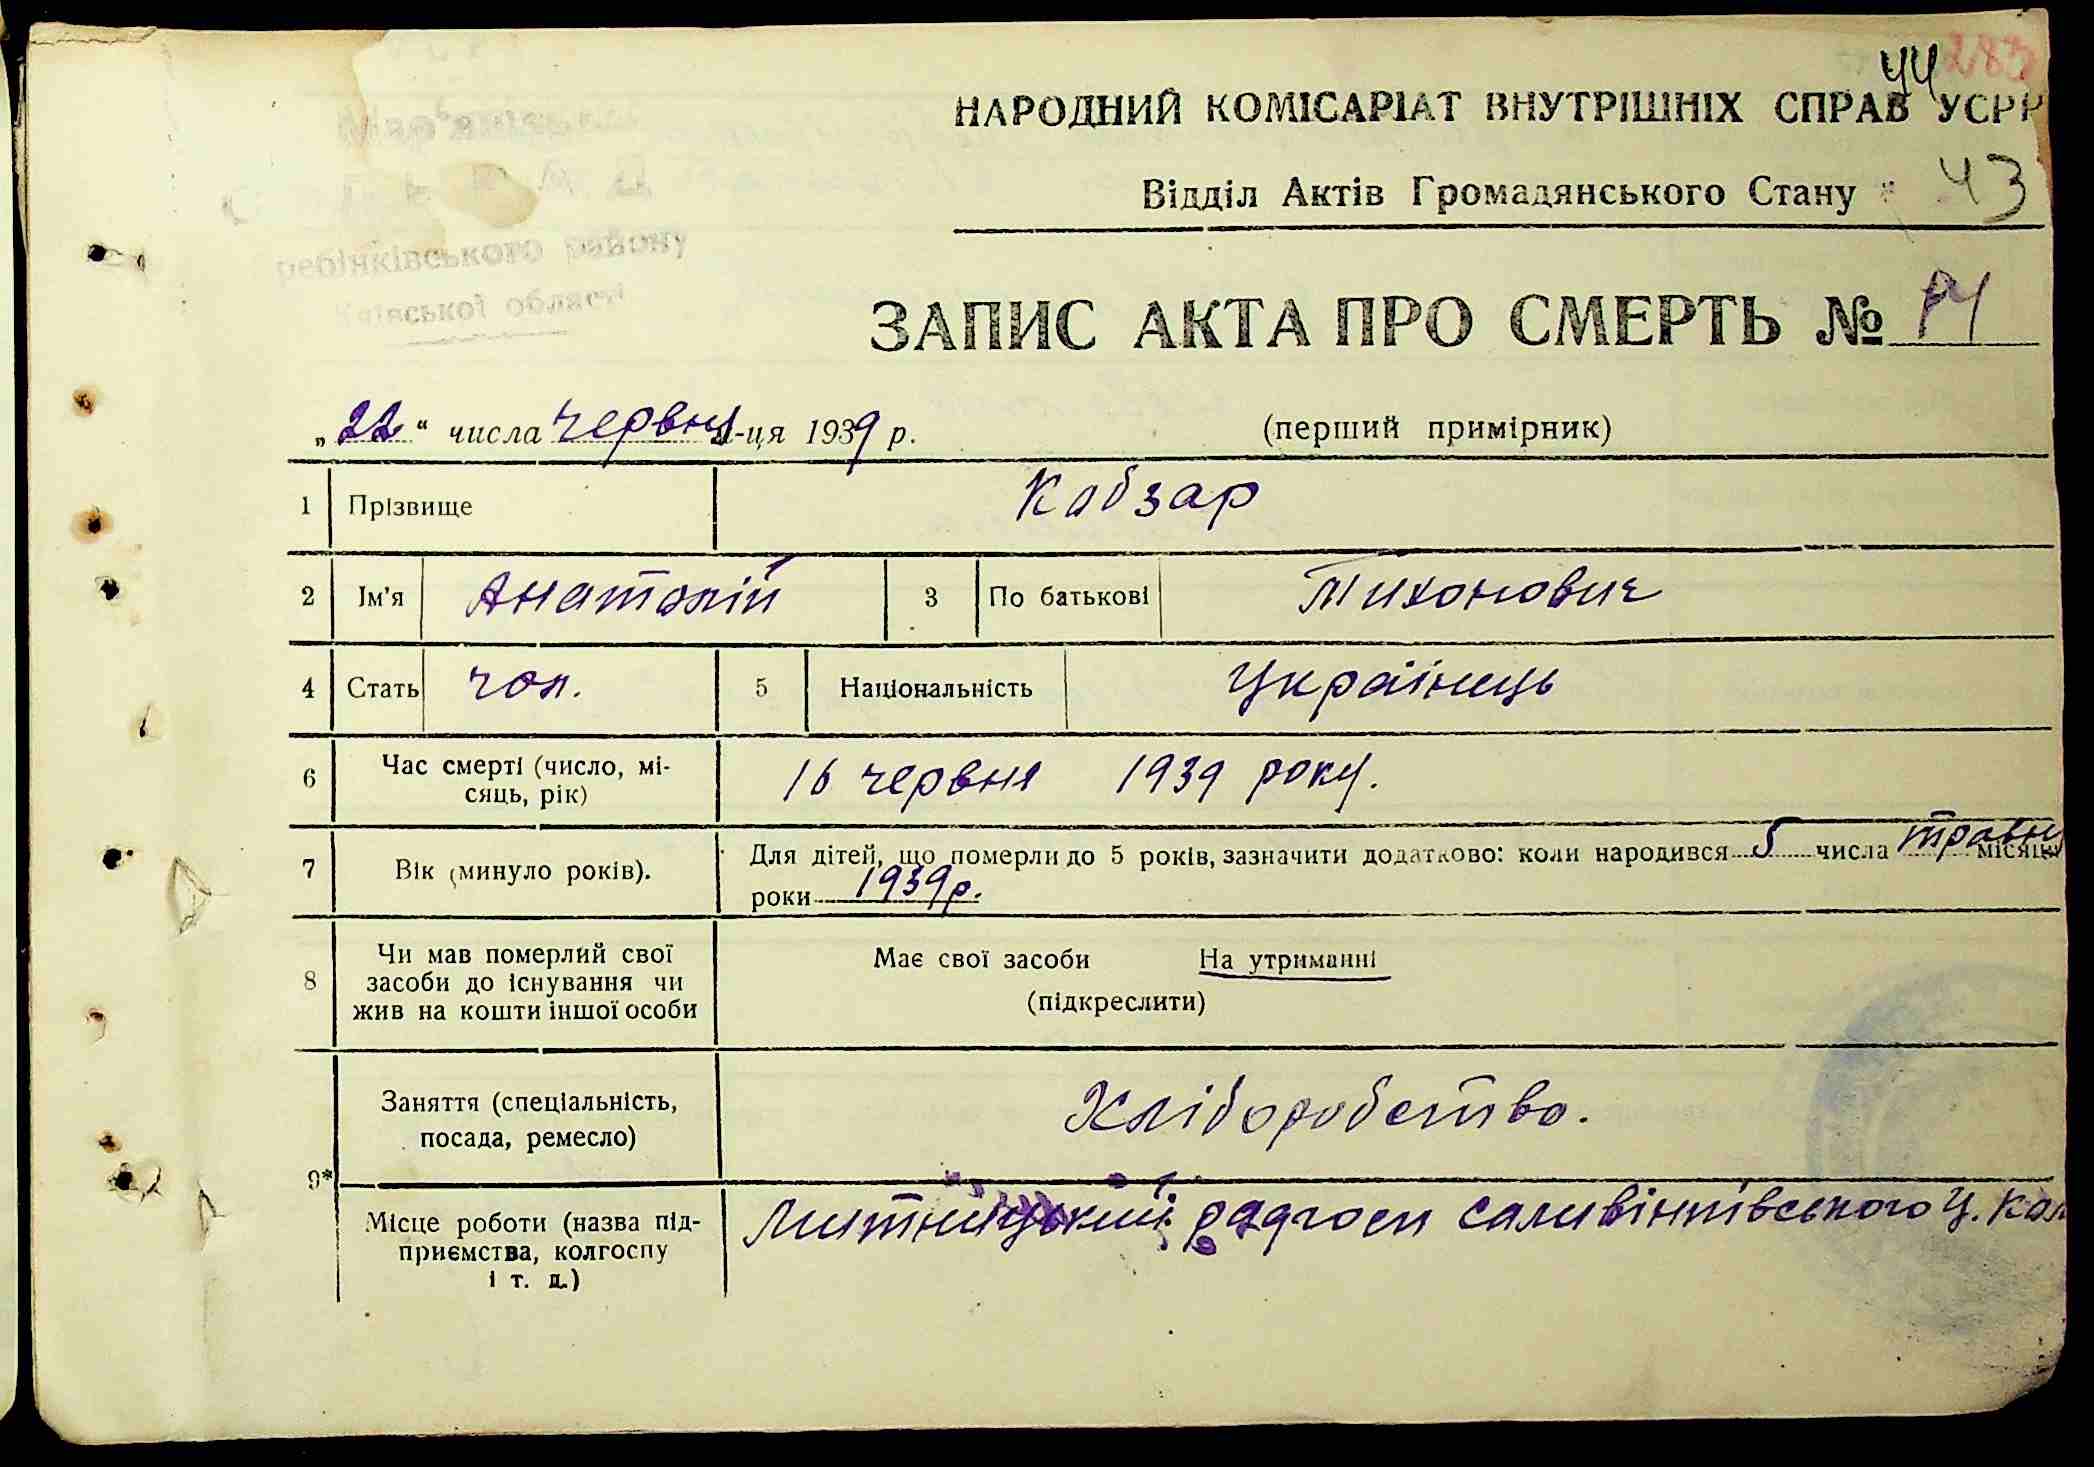 44 283
НАРОДНИЙ КОМІСАРІАТ ВНУТРІШНІХ СПРАВ УСРР
Відділ Актів Громадянського Стану 43
ребінківського району
Київської області
ЗАПИС АКТА ПРО СМЕРТЬ №
„22“ числа червня м-ця 1939 р. (перший примірник)
1 Прізвище Кобзар
2 Ім’я Анатолій 3 По батькові Тихонович
4 Стать чол. 5 Національність Українець
6 Час смерті (число, мі-
сяць, рік) 16 червня 1939 року.
7 Вік (минуло років). Для дітей, що померли до 5 років, зазначити додатково: коли народився 5 числа травня місяця
роки 1939 р.
8 Чи мав померлий свої
засоби до існування чи
жив на кошти іншої особи
Має свої засоби На утриманні
(підкреслити)
9* Заняття (спеціальність,
посада, ремесло) Хліборобство.
Місце роботи (назва під-
приємства, колгоспу
і т. д.)
Митницький радгосп саливінківського ц. ком